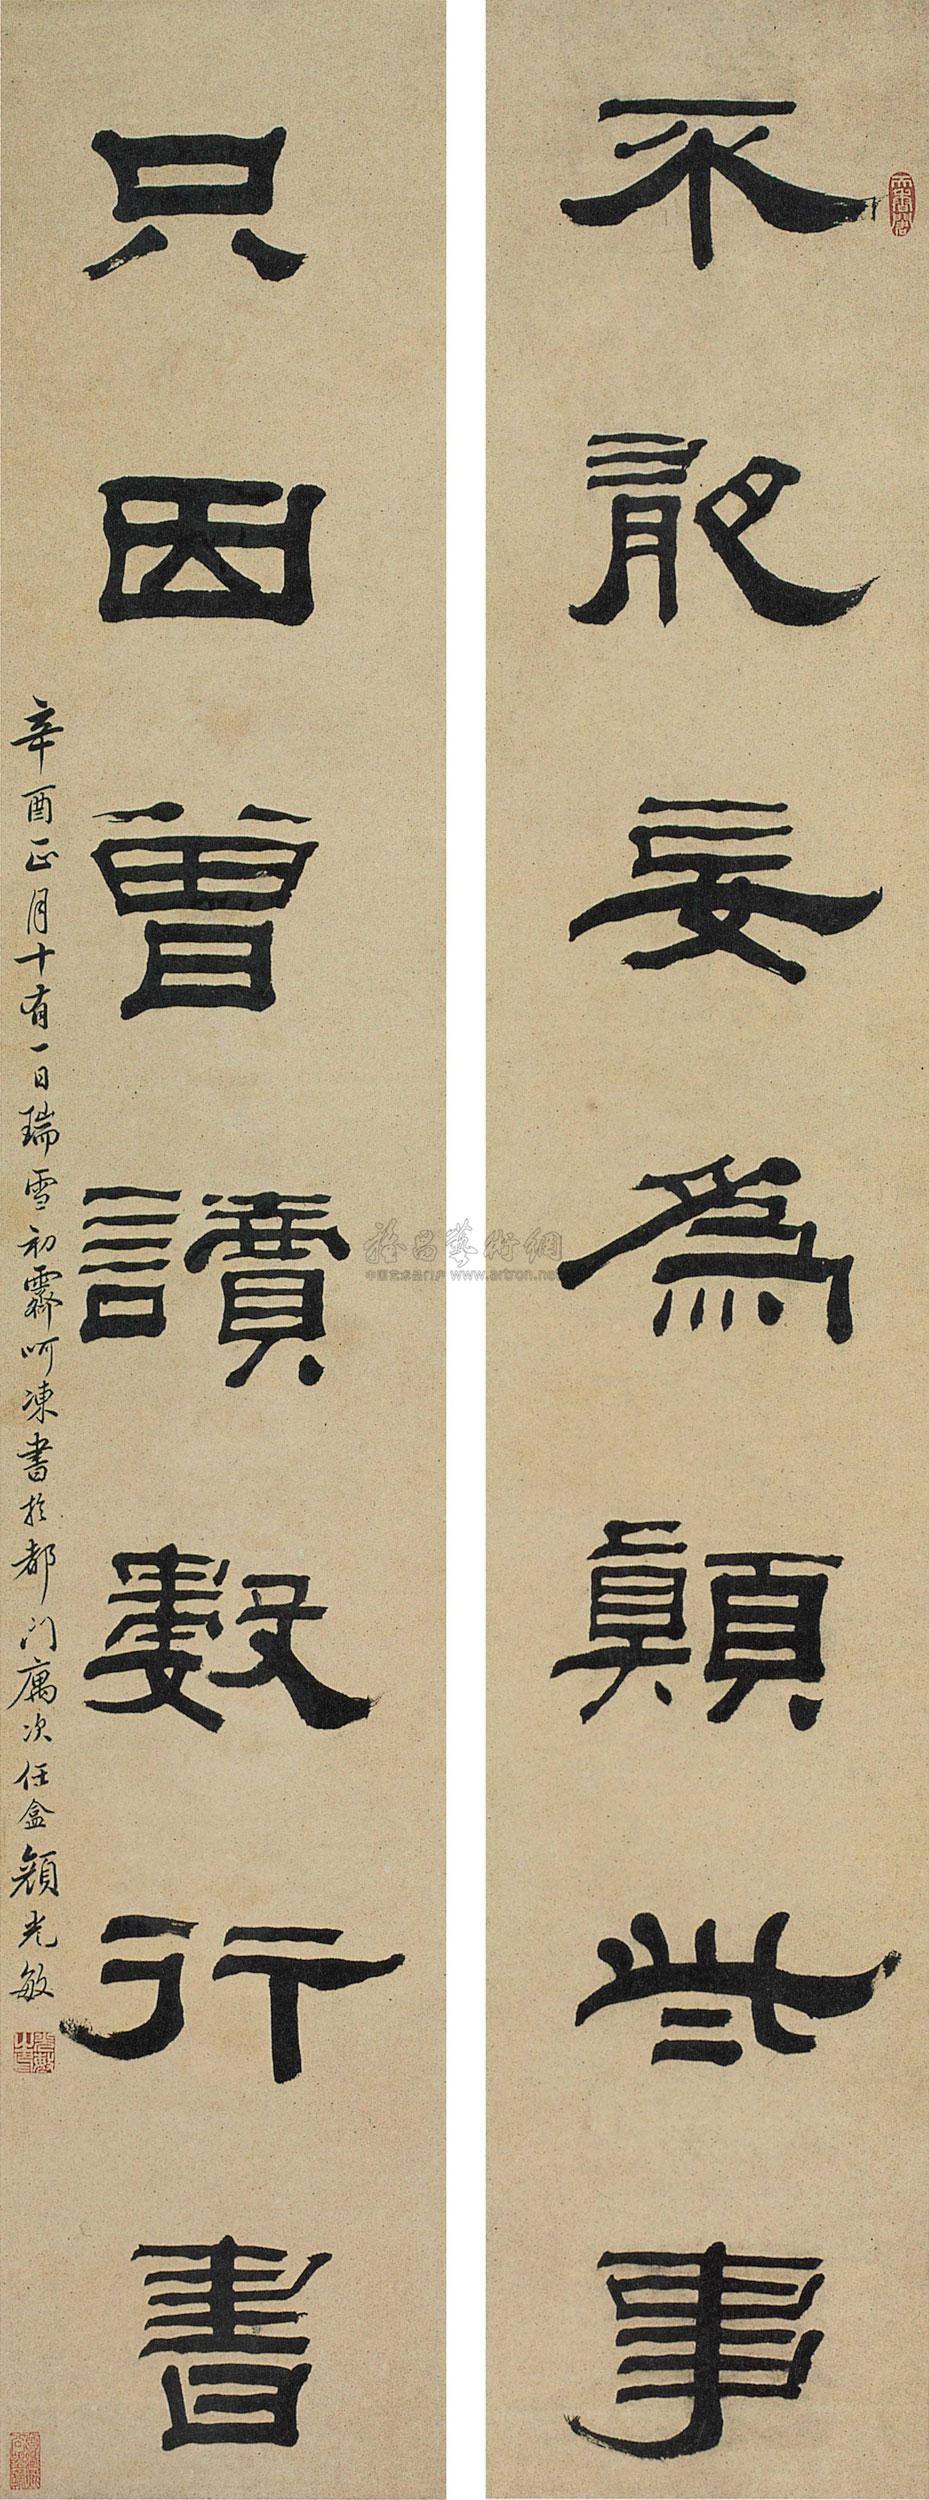 不能妄為顛些事
只因曾讀數行書
辛酉正月十有一日瑞雪初霽呵凍書於都門寓次任盦顏光敏
中国艺术品门户 www.artron.net